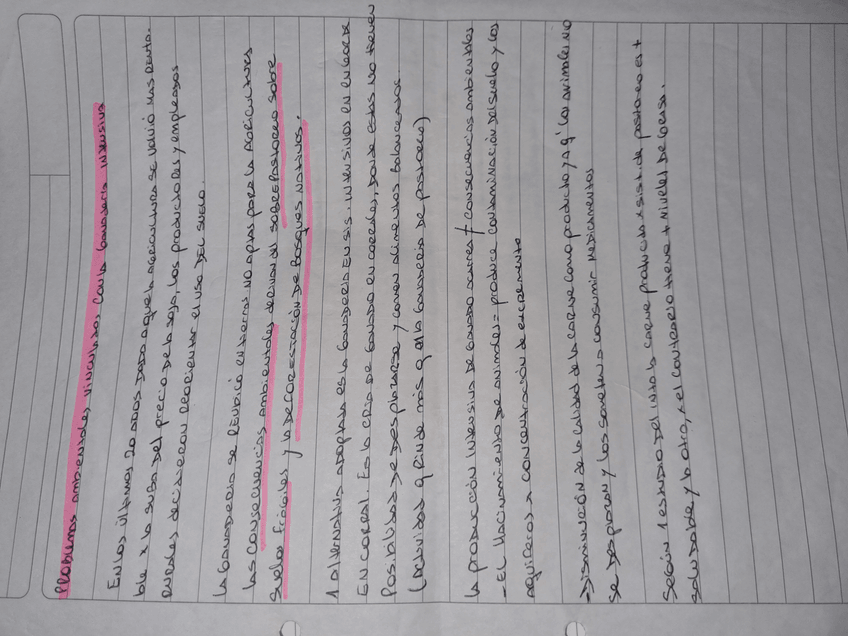 Problemas ambientales vinculados con la Ganadería Intensiva
En los últimos 20 años dado a que la agricultura se volvió mas renta-
ble x la suba del precio de la soja, los productores y empleados
rurales decidieron reorientar el uso del suelo.
la Ganadería se reubicó en tierras no aptas para la agricultura
las consecuencias ambientales derivan del sobrepastoreo sobre
suelos frágiles y la deforestación de Bosques nativos.
1 alternativa adoptada es la Ganadería en sis. intensivos en engorde
en corral. Es la cría de ganado en corrales, donde estas no tienen
posibilidad de desplazarse y comen alimentos balanceados.
(Actividad q rinde más q la Ganadería de pastoreo)
la producción intensiva de Ganado acarrea ≠ consecuencias ambientales
- El Hacinamiento de animales = produce contaminación del suelo y los
acuíferos x concentración de excremento
→ Disminución de la calidad de la carne como producto ya q' los animales no
se desplazan y los someten a consumir medicamentos
Según 1 estudio del inta la carne producida x sist. de pastoreo es +
saludable y la otra, x el contrario tiene + niveles de Grasa.